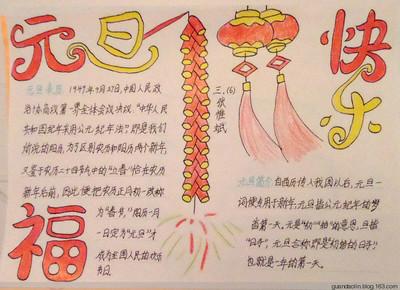 元旦
快乐
元旦来历 1949年9月27日,中国人民政
治协商议第一界全体会议决议,"中华人民
共和国纪年采用公元纪年法",即是我们
所说的阳历,为了区别农历和阳历两个新年,
又鉴于农历二十四节气中的"立春"恰在农历
新年的前后,因此便把农历正月初一改称
为"春节",阳历一月
一日定为"元旦",才
成为全国人民的欢乐
节日。
福
三、(6)
元旦简介 自西历传入我国以后,元旦一
词便专用于新年,元旦指公元纪年的岁
首第一天。元是"初""始"的意思,旦指
"日子",元旦合称即是"初始的日子"
也就是一年的第一天。
guandaolin.blog.163.com